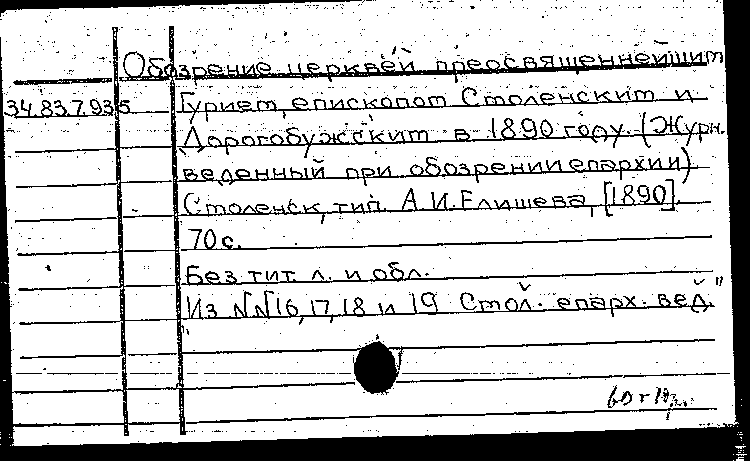 Обозрение церквей преосвященнейшим
34.83.7.935 Гурием, епископом Смоленским и
Дорогобужским в 1890 году. (Журн.
веденный при обозрении епархии)
Смоленск, тип. А.И.Елишева, [1890].
70 с.
Без тит. л. и обл.
Из №№16, 17, 18 и 19 "Смол. епарх. вед."